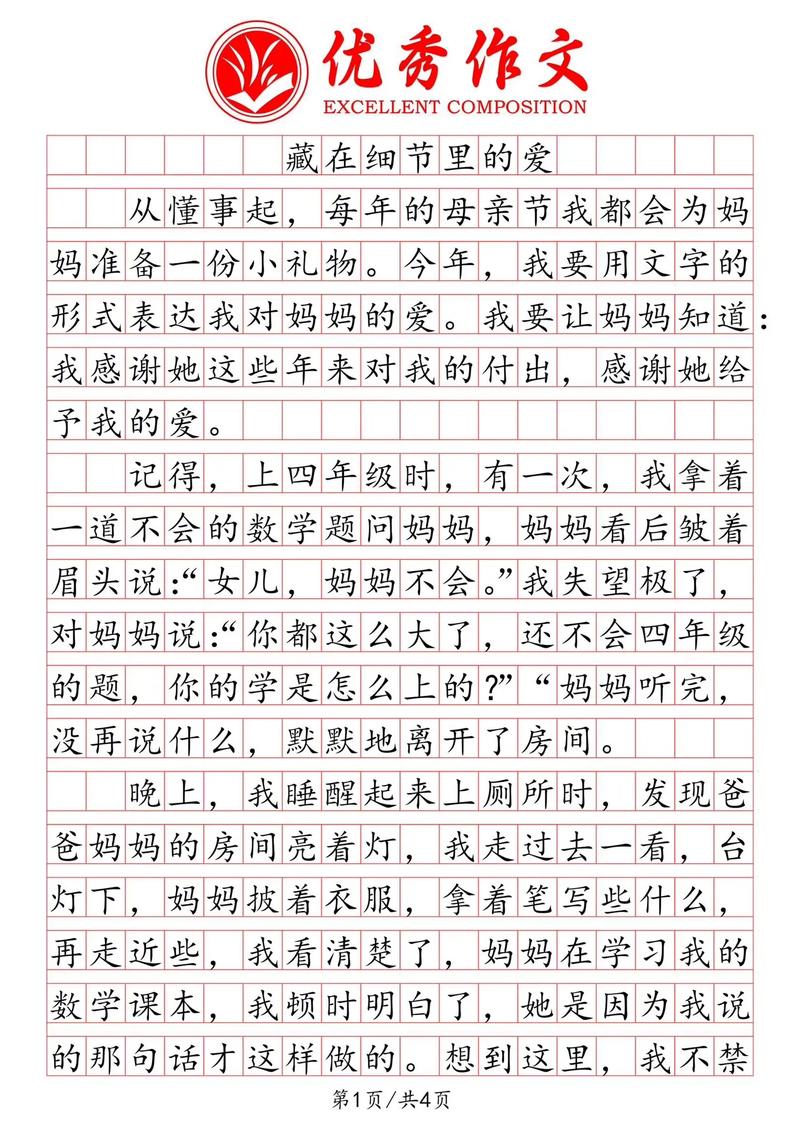 优秀作文
EXCELLENT COMPOSITION
藏在细节里的爱
从懂事起，每年的母亲节我都会为妈
妈准备一份小礼物。今年，我要用文字的
形式表达我对妈妈的爱。我要让妈妈知道：
我感谢她这些年来对我的付出，感谢她给
予我的爱。
记得，上四年级时，有一次，我拿着
一道不会的数学题问妈妈，妈妈看后皱着
眉头说：“女儿，妈妈不会。”我失望极了，
对妈妈说：“你都这么大了，还不会四年级
的题，你的学是怎么上的？”“妈妈听完，
没再说什么，默默地离开了房间。
晚上，我睡醒起来上厕所时，发现爸
爸妈妈的房间亮着灯，我走过去一看，台
灯下，妈妈披着衣服，拿着笔写些什么，
再走近些，我看清楚了，妈妈在学习我的
数学课本，我顿时明白了，她是因为我说
的那句话才这样做的。想到这里，我不禁
第1页/共4页